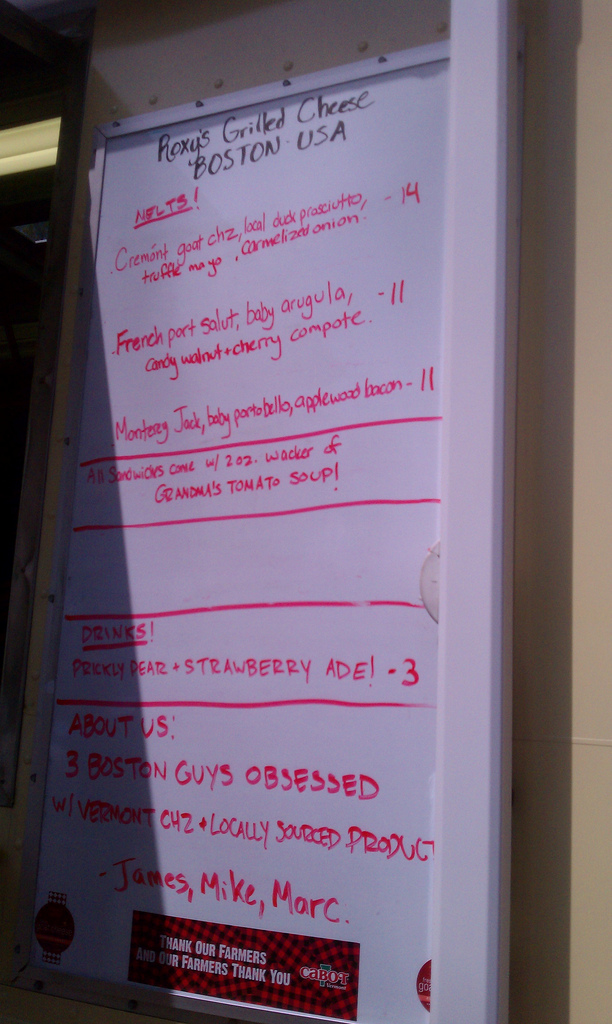 Roxy's Grilled Cheese
BOSTON USA
MELTS!
. Cremónt goat chz, local duck prosciutto, - 14
truffle mayo , carmelized onion.
. French port salut, baby arugula, - 11
candy walnut + cherry compote.
. Monterey Jack, baby portobello, applewood bacon - 11
All Sandwichs come w/ 2oz. wacker of
GRANDMA'S TOMATO SOUP!
DRINKS!
PRICKLY PEAR + STRAWBERRY ADE! - 3
ABOUT US:
3 BOSTON GUYS OBSESSED
W/ VERMONT CHZ + LOCALLY SOURCED PRODUCT
- James, Mike, Marc.
THANK OUR FARMERS
AND OUR FARMERS THANK YOU
CABOT
Vermont